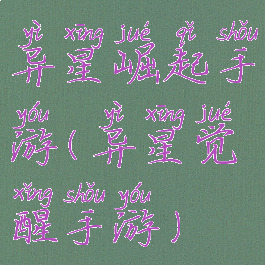 yì xīng jué qǐ shǒu
异星崛起手
yóu yì xīng jué
游(异星觉
xǐng shǒu yóu
醒手游)